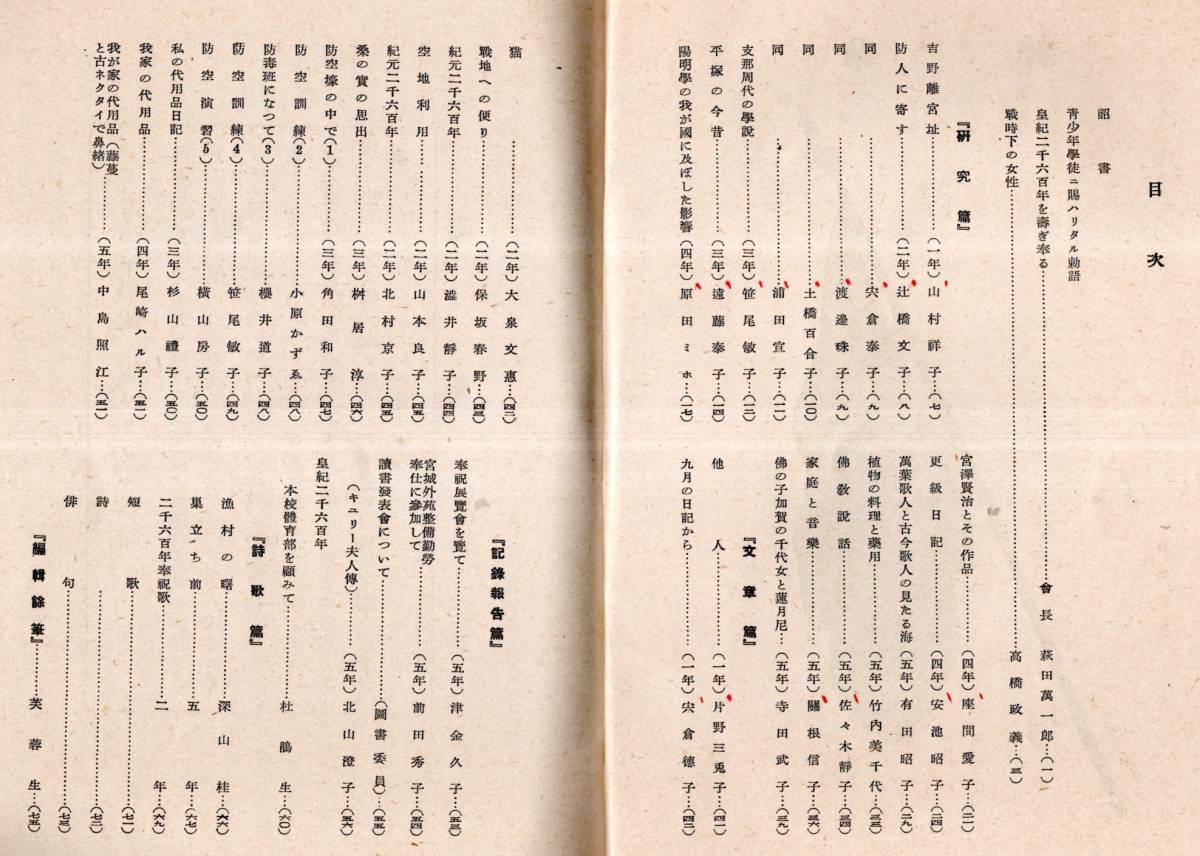 目次
詔書
靑少年學徒ニ賜ハリタル勅語
皇紀二千六百年を壽ぎ奉る……會長 萩田萬一郞…(一)
戰時下の女性……高橋政義…(三)
『硏究篇』
吉野離宮址……(一年)山村祥子…(七)
防人に寄す……(二年)辻橋文子…(八)
同……宍倉泰子…(九)
同……渡邊珠子…(九)
同……土橋百合子…(一〇)
同……浦田宣子…(一一)
支那周代の學說……(三年)笹尾敏子…(一二)
平塚の今昔……(三年)遠藤泰子…(一四)
陽明學の我が國に及ぼした影響(四年)原田ミホ…(一七)
宮澤賢治とその作品……(四年)座間愛子…(二一)
更級日記……(四年)安池昭子…(二四)
萬葉歌人と古今歌人の見たる海(五年)有田昭子…(二九)
植物の料理と藥用……(五年)竹內美千代…(三三)
佛敎說話……(五年)佐々木靜子…(三四)
家庭と音樂……(五年)關根信子…(三六)
佛の子加賀の千代女と蓮月尼…(五年)寺田武子…(三九)
『文章篇』
他人……(一年)片野三兎子…(四一)
九月の日記から……(一年)宍倉德子…(四二)
猫……(二年)大泉文惠…(四二)
戰地への便り……(二年)保坂春野…(四三)
紀元二千六百年……(二年)澁井靜子…(四四)
空地利用……(二年)山本良子…(四五)
紀元二千六百年……(二年)北村京子…(四五)
桑の實の思出……(三年)桝居淳子…(四六)
防空壕の中で(1)……(三年)角田和子…(四七)
防空訓練(2)……小原かずゑ…(四八)
防毒班になつて(3)……櫻井道子…(四八)
防空訓練(4)……笹尾敏子…(四九)
防空演習(5)……橫山房子…(五〇)
私の代用品日記……(三年)杉山禮子…(五〇)
我家の代用品……(四年)尾崎ハル子…(五一)
我が家の代用品(藤蔓
と古ネクタイで鼻緖)……(五年)中島照江…(五一)
『記錄報告篇』
奉祝展覽會を覽て……(五年)津金久子…(五三)
宮城外苑整備勤勞
奉仕に參加して……(五年)前田秀子…(五四)
讀書發表會について……(圖書委員)…(五五)
(キユリー夫人傳)……(五年)北山澄子…(五六)
皇紀二千六百年
本校體育部を顧みて……杜鵑生…(六〇)
『詩歌篇』
漁村の曙……深山桂…(六六)
巢立ち前……五年…(六七)
二千六百年奉祝歌……二年…(六九)
短歌……(七一)
詩……(七二)
俳句……(七三)
『編輯餘筆』……芙蓉生…(七五)